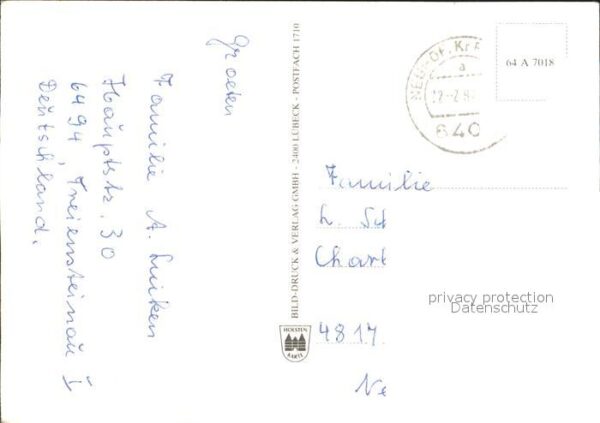 Groeten
Familie A. Luiken
Hauptstr. 30
6494, Freiensteinau I
Deutschland.
BILD-DRUCK & VERLAG GMBH - 2400 LÜBECK - POSTFACH 1710
HOLSTEN
KARTE
a
640
64 A 7018
Familie
L. Sch
Chart
4817
Ne
privacy protection
Datenschutz